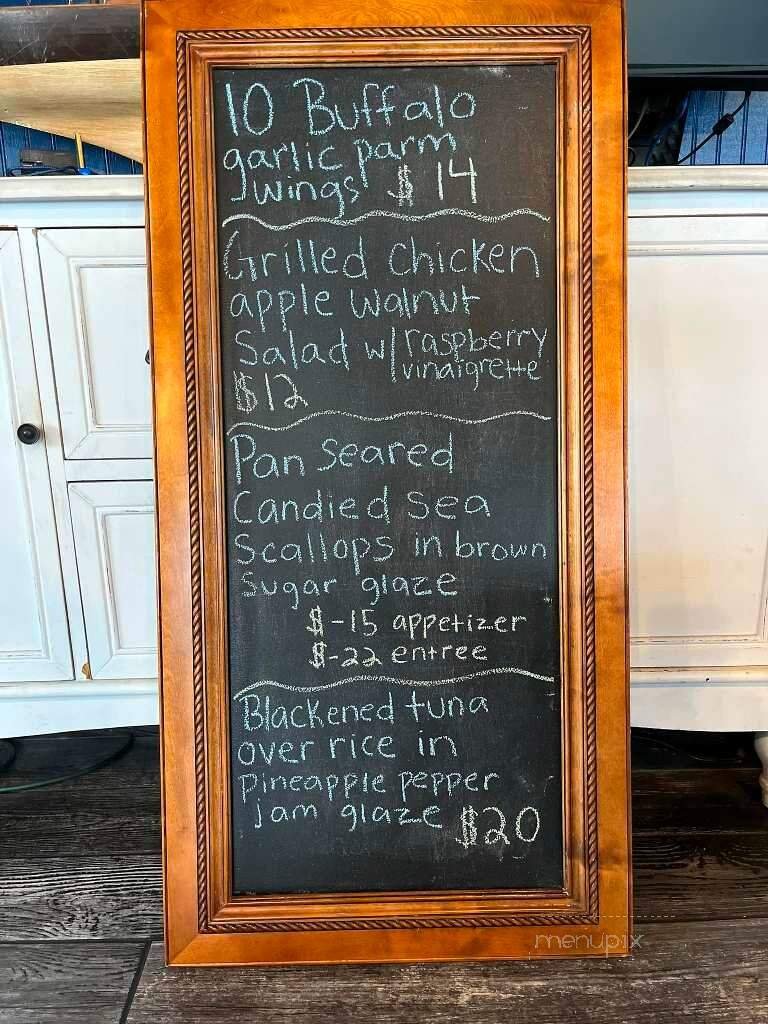 10 Buffalo
garlic parm
wings $14
Grilled Chicken
apple walnut
Salad w/ raspberry
vinaigrette
$12
Pan Seared
Candied Sea
Scallops in brown
Sugar glaze
$-15 appetizer
$-22 entree
Blackened tuna
over rice in
Pineapple pepper
jam glaze $20
menupix